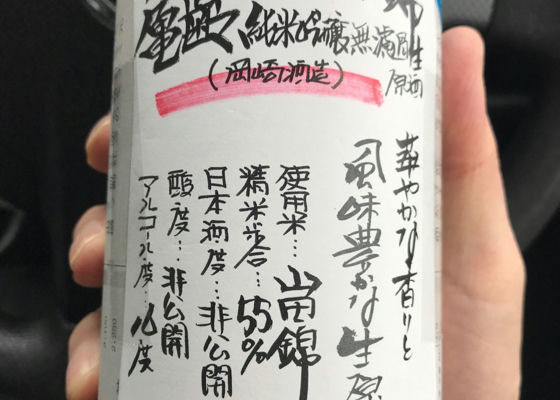 純米吟醸無濾過生原酒
(岡崎酒造)
華やかな香りと
風味豊かな生原
使用米…山田錦
精米歩合…55%
日本酒度…非公開
酸度…非公開
アルコール度…16度